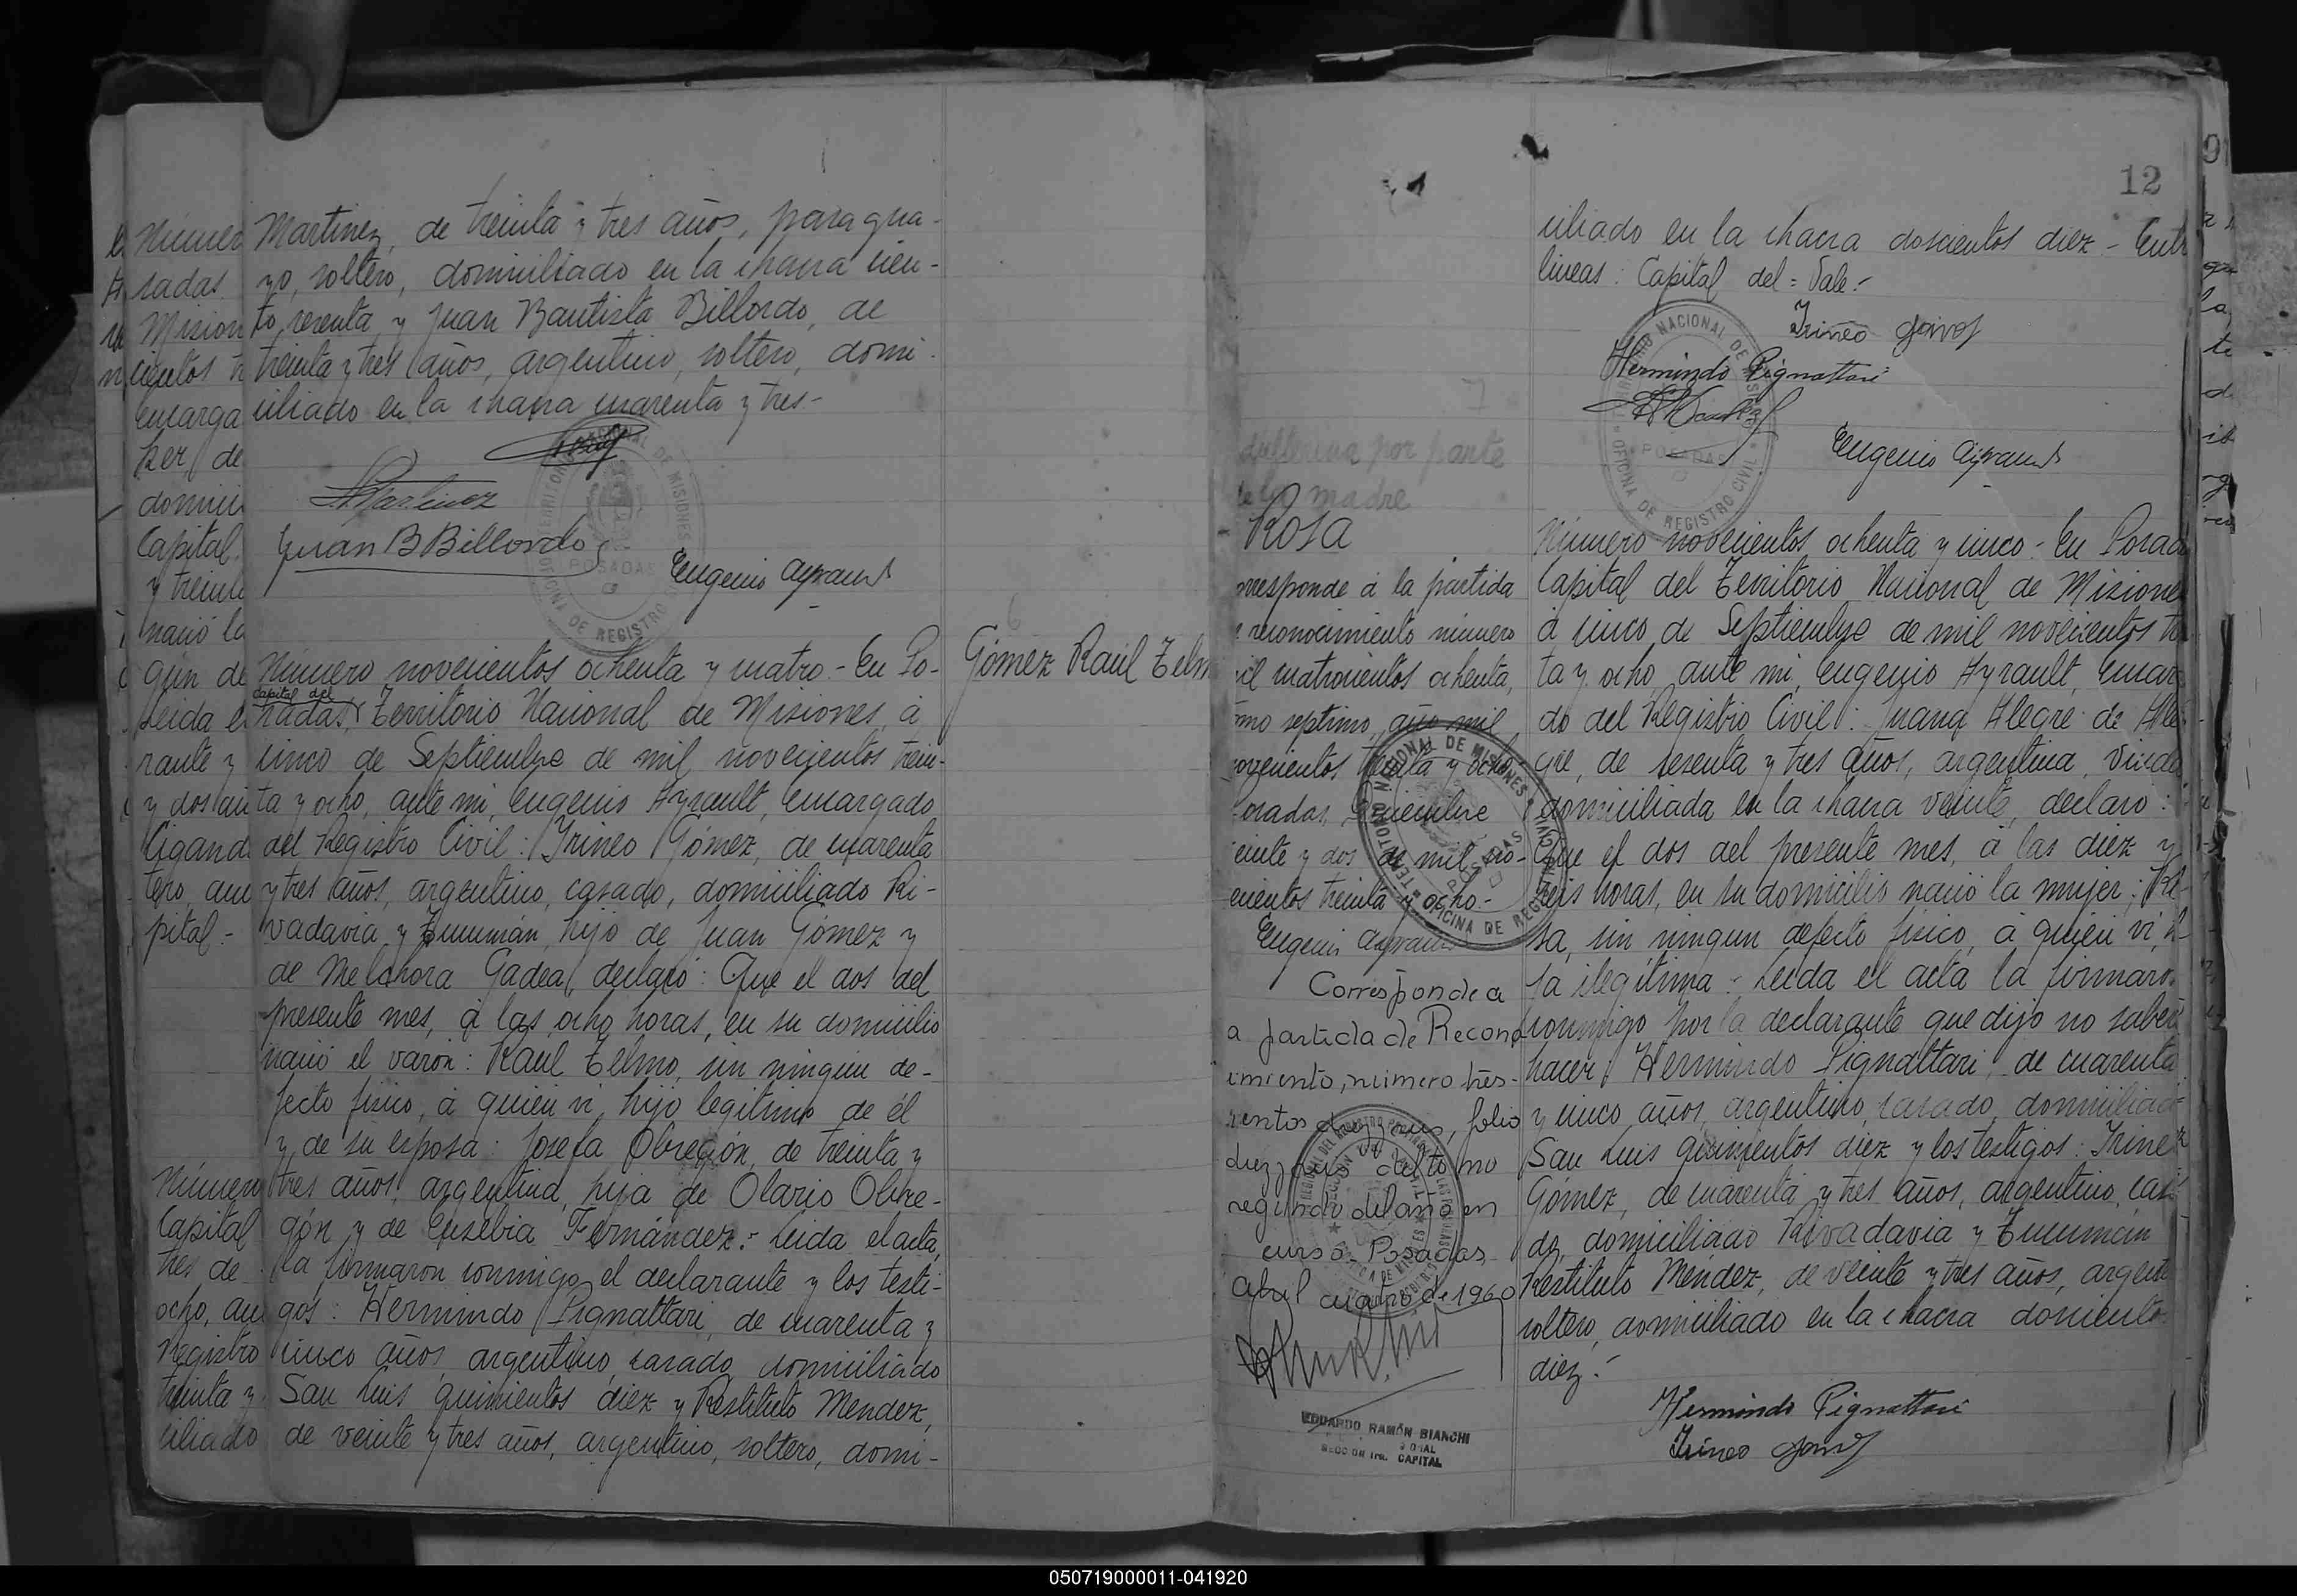 Martinez, de treinta y tres años, paragua-
yo, soltero, domiciliado en la chacra cien-
to sesenta y Juan Bautista Billordo, de
treinta y tres años, argentino, soltero, domi-
ciliado en la chacra cuarenta y tres-
Martinez
Juan B Billordo
Eugenio Ayrault
Número novecientos ochenta y cuatro.- En Po-
capital del
sadas, Territorio Nacional de Misiones, á
cinco de Septiembre de mil novecientos trein-
ta y ocho, ante mi, Eugenio Ayrault, Encargado
del Registro Civil: Irineo Gómez, de cuarenta
y tres años, argentino, casado, domiciliado Ri-
vadavia y Tucumán, hijo de Juan Gómez y
de Melchora Gadea, declaró: Que el dos del
presente mes, á las ocho horas, en su domicilio
nació el varón: Raúl Telmo, sin ningún de-
fecto físico, á quién ví, hijo legítimo de él
y de su esposa: Josefa Obregón, de treinta y
tres años, argentina, hija de Olario Obre-
gón y de Eusebia Fernández.- Leida el acta,
la firmaron conmigo, el declarante y los testi-
gos: Hermindo Pignattari, de cuarenta y
cinco años, argentino, casado, domiciliado
San Luis quinientos diez y Restituto Mendez,
de veinte y tres años, argentino, soltero, domi-
Gómez Raúl Telm
Númer
sadas
Mision
cientos
encarga
ker, de
domici
Capital.
y treinta
nació la
gún de
Leida e
rante y
y dos añ
Cigand
tero, au
pital.-
Número
Capital
tres de
ocho, au
Registro
treinta y
ciliado
12
ciliado en la chacra doscientos diez - Entr
lineas: Capital del = Vale.-
Irineo Gomez
Hermindo Pignattari
Eugenio Ayrault
TERRITORIO NACIONAL DE MISIONES
POSADAS
OFICINA DE REGISTRO CIVIL
por parte
de la madre
Rosa
orresponde á la partida
e reconocimiento número
mil cuatrocientos ochenta,
omo septimo, año mil
ovecientos treinta y ocho.-
osadas,
veinte y dos de mil no-
ecientos treinta y ocho.-
Eugenio Ayrault
Corresponde a
a partida de Recono
cimiento, número tres-
cientos folio
diez y del tomo
segundo del año en
curso. Posadas,
Abril cuatro de 1960
EDUARDO RAMÓN BIANCHI
SECCION 1ra. CAPITAL
Número novecientos ochenta y cinco.- En Posad
Capital del Territorio Nacional de Misione
á cinco de Septiembre de mil novecientos tr
ta y ocho, ante mi, Eugenio Ayrault, Encar
do del Registro Civil: Juana Alegre de Ale
gre, de sesenta y tres años, argentina, viuda
domiciliada en la chacra veinte, declaró:
Que el dos del presente mes, á las diez y
seis horas, en su domicilio nació la mujer: Ro-
sa, sin ningun defecto físico, á quién ví, hi-
ja ilegítima.- Leida el acta la firmaro
conmigo por la declarante que dijo no saber
hacer Hermindo Pignattari, de cuarenta
y cinco años, argentino, casado, domiciliado
San Luis quinientos diez y los testigos: Irineo
Gómez, de cuarenta y tres años, argentino, casa
do, domiciliado Rivadavia y Tucumán
Restituto Mendez, de veinte y tres años, argenti
soltero, domiciliado en la chacra doscientos
diez.-
Hermindo Pignattari
Irineo Gomez
050719000011-041920